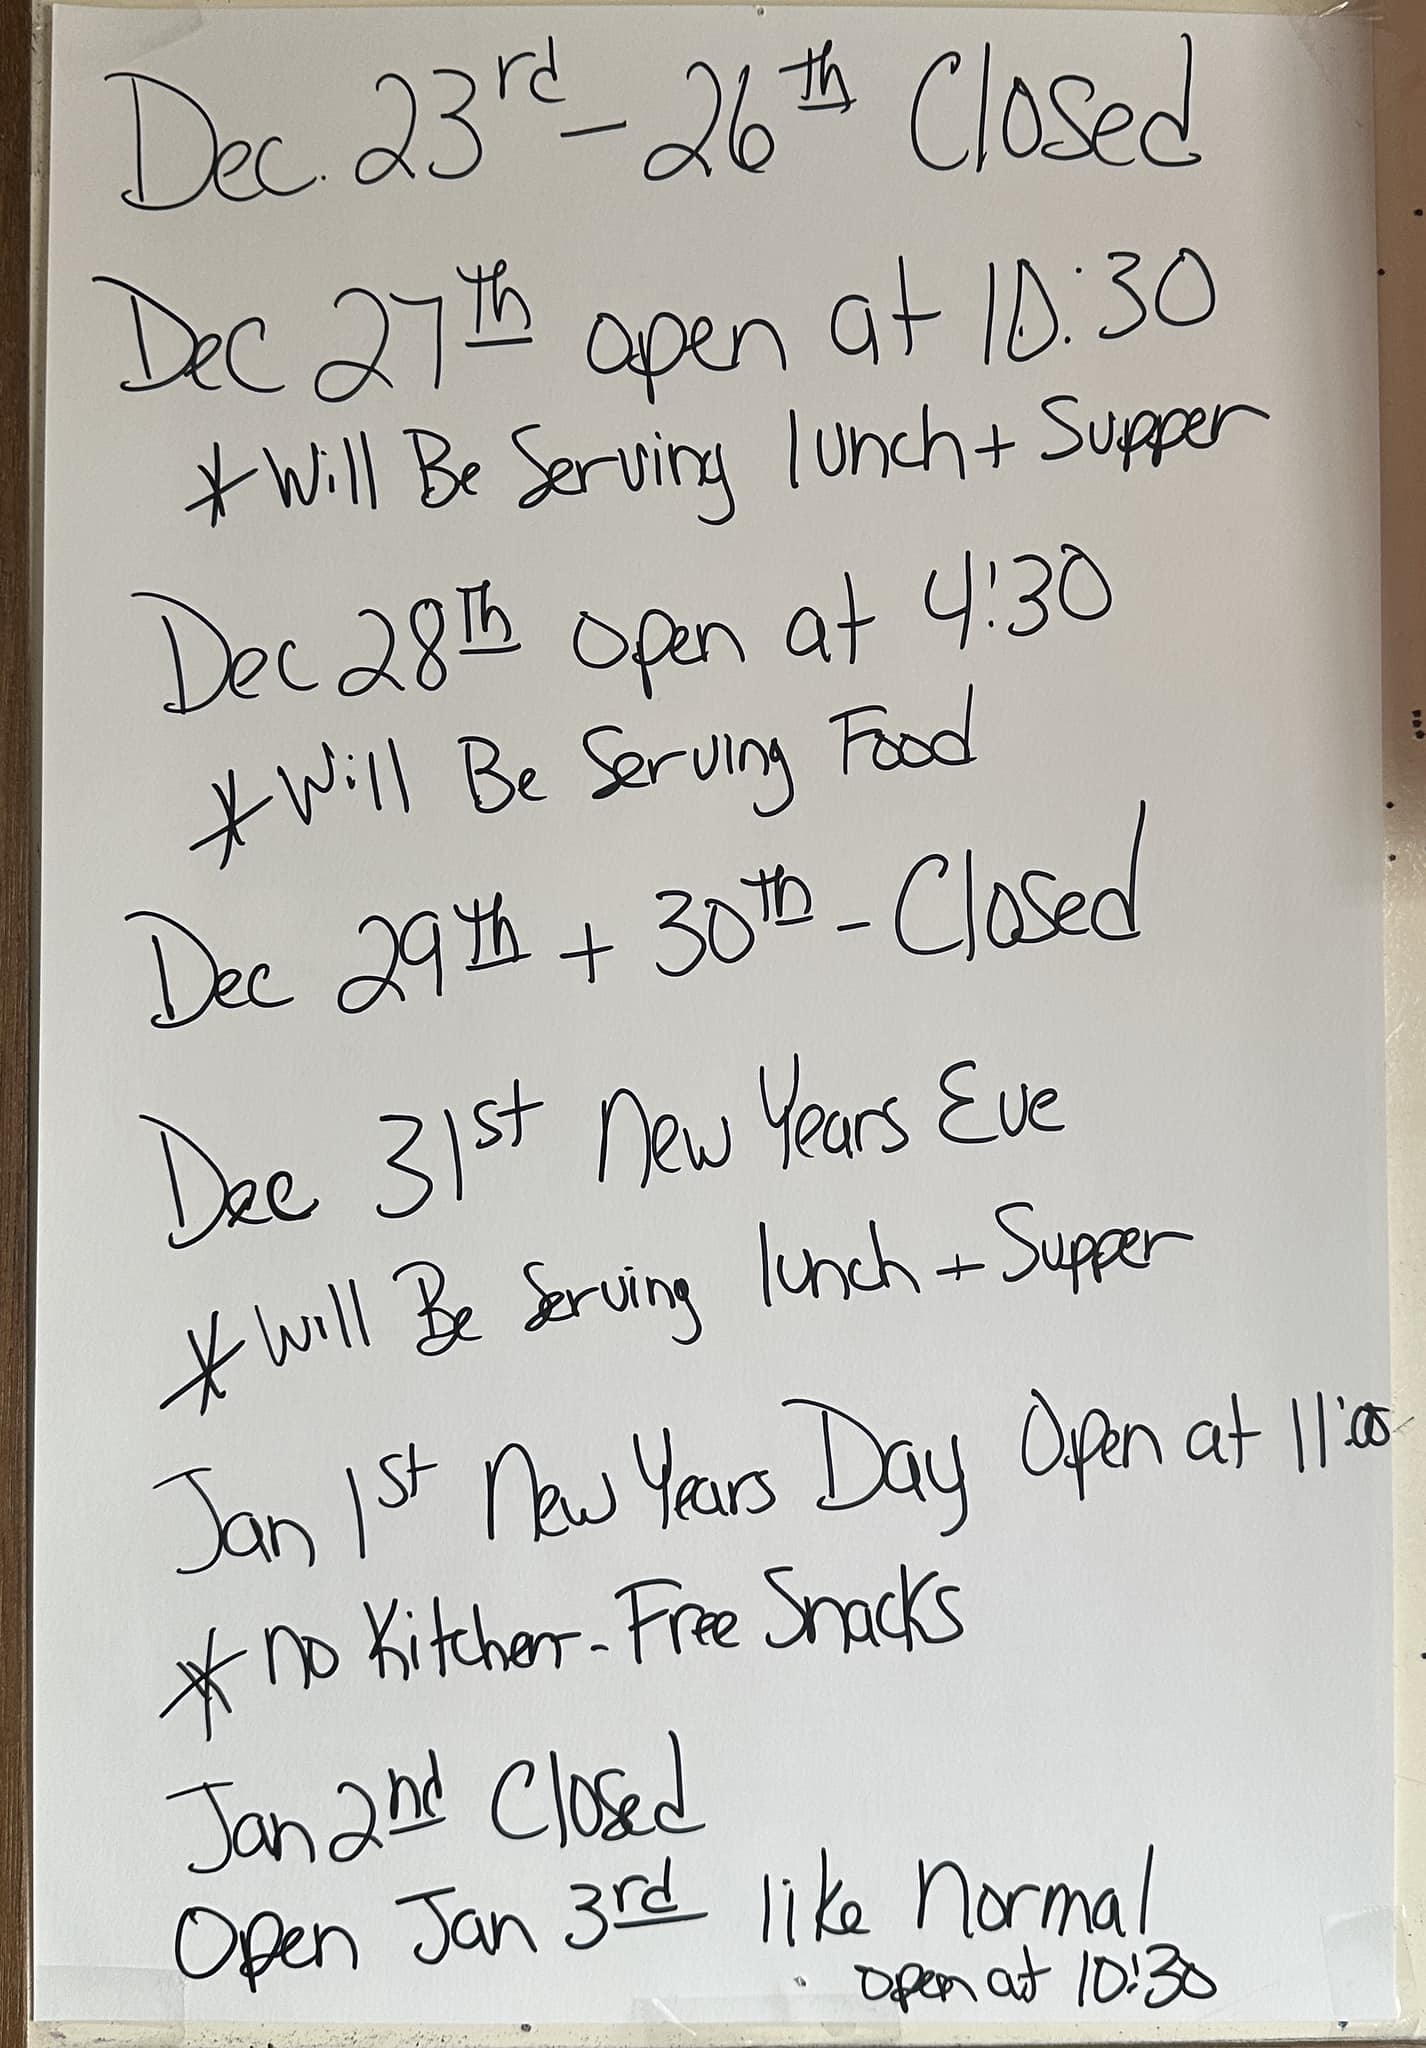 Dec. 23rd - 26th Closed
Dec 27th open at 10:30
* Will Be Serving lunch + Supper
Dec 28th open at 4:30
* Will Be Serving Food
Dec 29th + 30th - Closed
Dec 31st New Years Eve
* Will Be Serving lunch + Supper
Jan 1st New Years Day Open at 11:00
* no Kitchen - Free Snacks
Jan 2nd Closed
Open Jan 3rd like Normal
open at 10:30